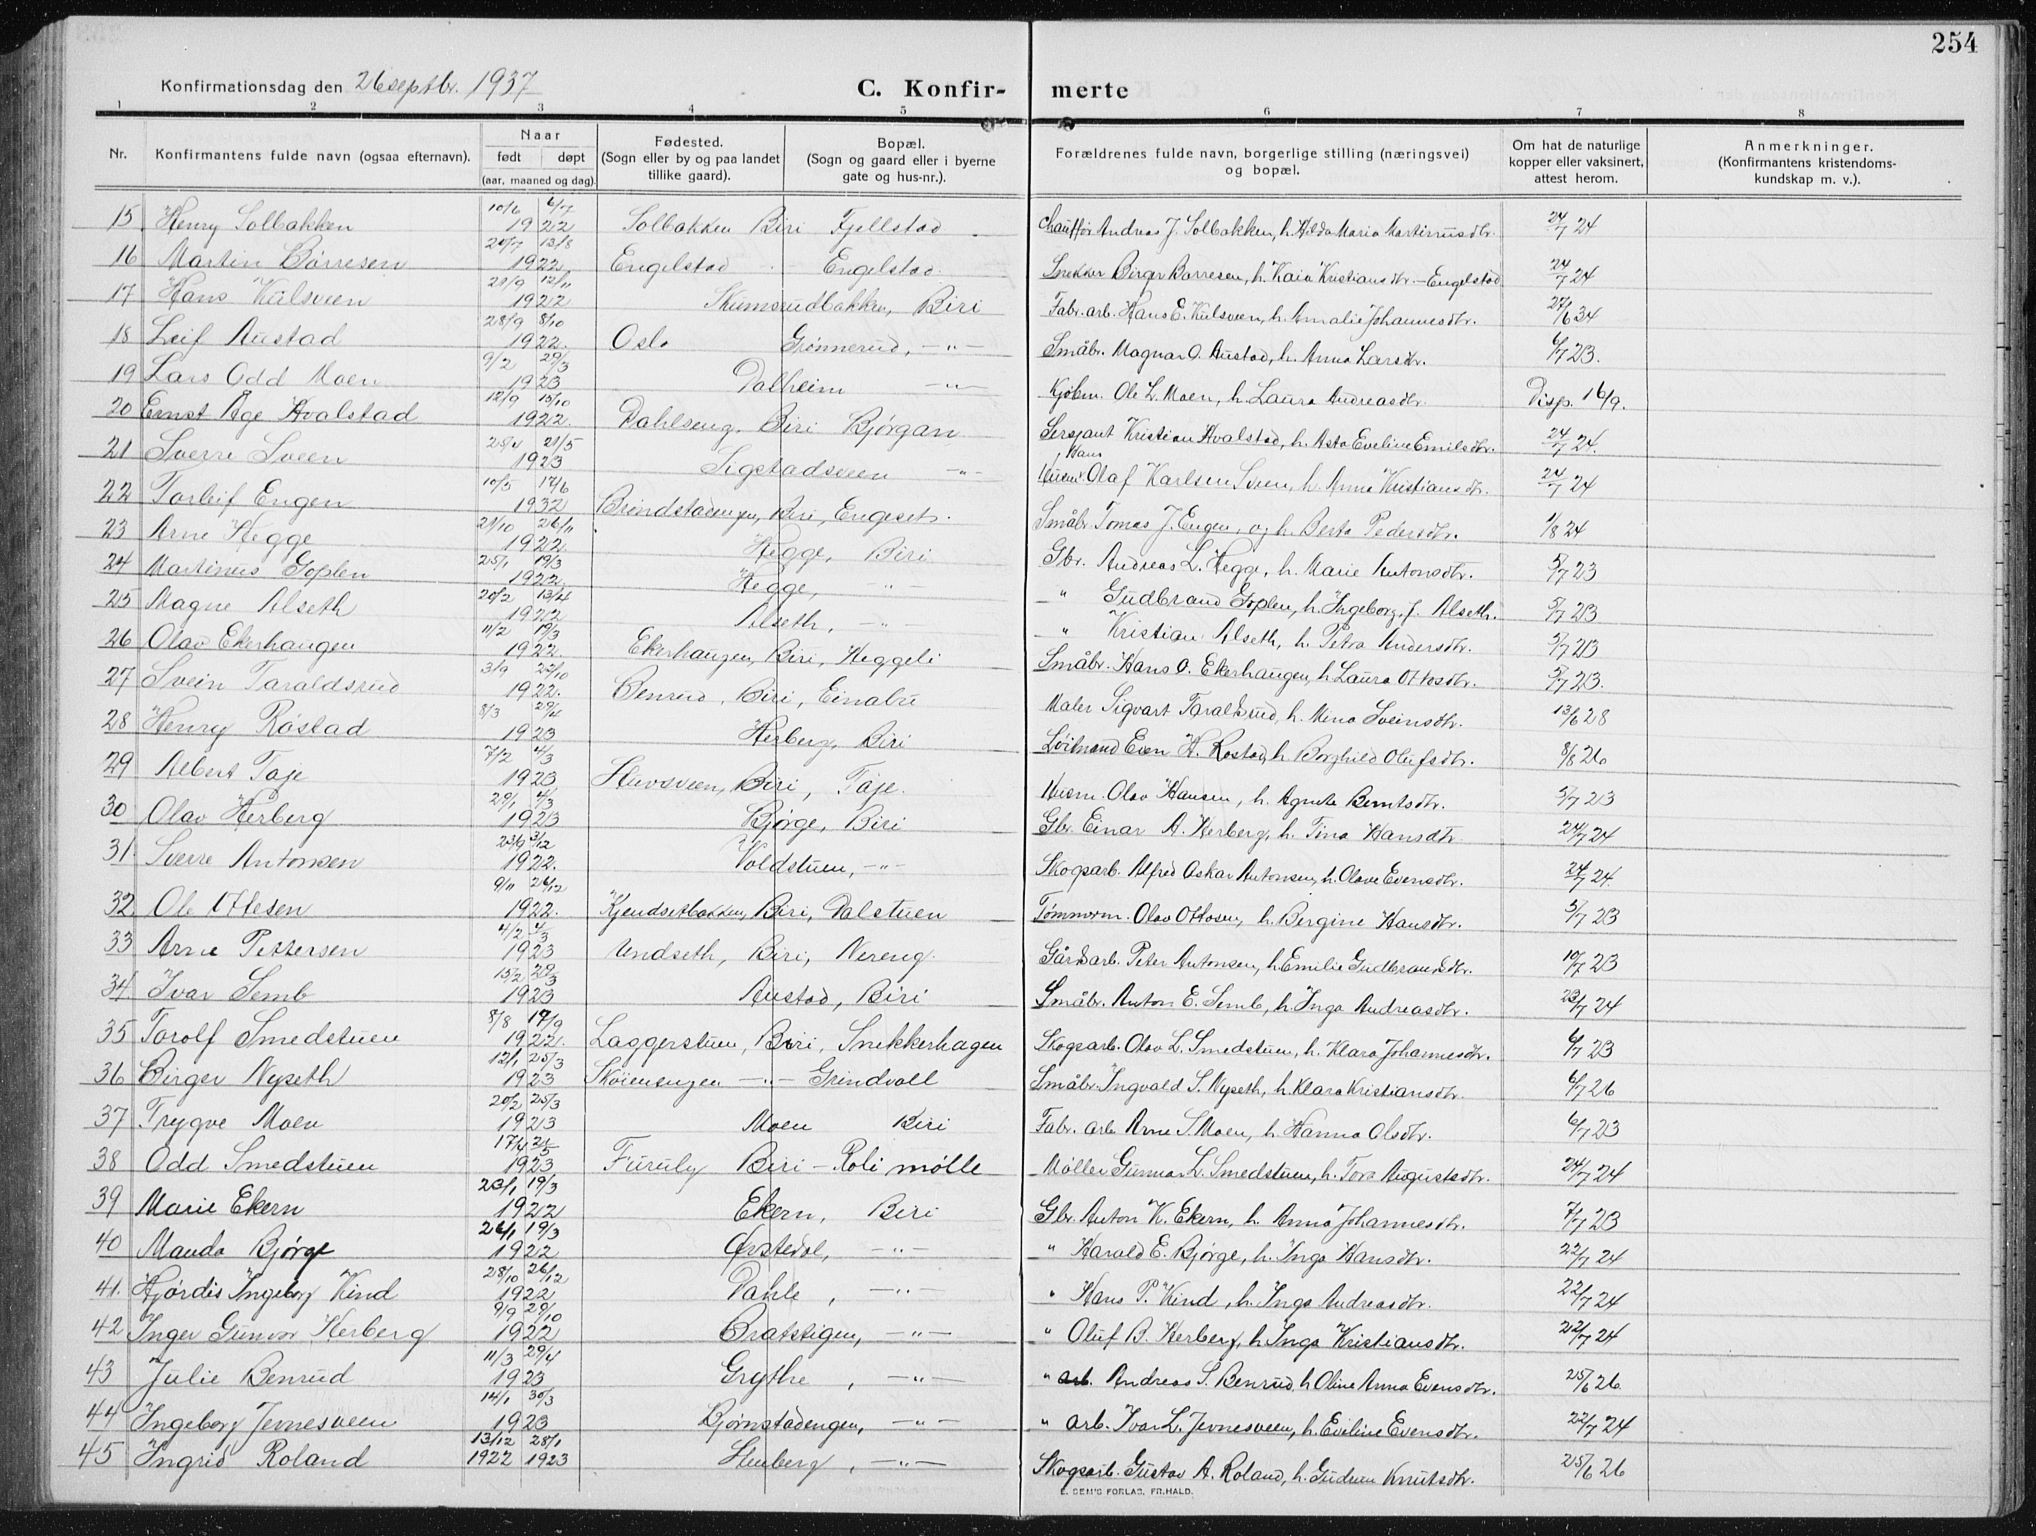 254
Konfirmationsdag den 26 septbr. 1937 C. Konfirmerte
1 2 3 4 5 6 7 8
Nr. Konfirmantens fulde navn (ogsaa efternavn). Naar født døpt (aar, maaned og dag). Fødested. (Sogn eller by og paa landet tillike gaard). Bopæl. (Sogn og gaard eller i byerne gate og hus-nr.). Forældrenes fulde navn, borgerlige stilling (næringsvei) og bopæl. Om hat de naturlige kopper eller vaksinert, attest herom. Anmerkninger. (Konfirmantens kristendoms-kundskap m. v.).
15 Henry Solbakken 10/6 6/7 1922 Solbakken Biri Fjellstad Chauffør Andreas J. Solbakken, h. Hilda Maria Martinusdtr. 24/7 24
16 Martin Børresen 20/7 13/8 1922 Engelstad - Engelstad Snekker Birger Børresen, h. Kaia Kristiansdtr. - Engelstad 24/7 24
17 Hans Kulsveen 21/9 12/11 1922 Skumsrudbakken, Biri Fabr. arb. Hans E. Kulsveen, h. Amalie Johannesdtr. 27/6 34
18 Leif Austad 28/9 8/10 1922. Oslo Grønnerud, -"- Småbr. Magnar O. Austad, h. Anna Larsdtr. 6/7 23.
19 Lars Odd Moen 9/2 29/3 1923 Dalheim -"- Kjøbm. Ole L. Moen, h. Laura Andreasdtr. Disp. 16/9.
20 Ernst Åge Hvalstad 12/9 15/10 1922. Dahlseng, Biri Bjørgan Sersjant Kristian Hvalstad, h. Asta Eveline Emilsdtr. 24/7 24.
21 Sverre Sveen 25/4 21/5 1923 Sigstadsveen -"- Husm. Hans Olaf Karlsen Sveen, h. Anna Kristiansdtr. 24/7 24
22 Torleif Engen 10/5 17/6 1932 Brindstadengen, Biri, Engeset. Småbr. Tomas J. Engen, og h. Berta Pedersdtr. 1/8 24
23 Arne Hegge 21/10 26/11 1922 Hegge, Biri Gbr. Andreas L. Hegge, h. Marie Antonsdtr. 5/7 23
24 Martinus Goplen 25/1 19/3 1922 Hegge, " " Gudbrand Goplen, h. Ingeborg J. Alseth. 5/7 23
25 Magne Alseth 20/2 13/4 1922 Alseth, -"- " Kristian Alseth, h. Petra Andersdtr. 5/7 23
26 Olav Ekerhaugen 11/2 19/3 1922. Ekerhaugen, Biri, Heggeli Småbr. Hans O. Ekerhaugen, h. Laura Ottosdtr. 5/7 23.
27 Svein Taraldsrud 3/9 22/10 1922. Benrud, Biri, Einabu Maler Sigvart Taraldsrud, h. Mina Sveinsdtr. 13/6 28
28 Henry Røstad 8/3 29/4 1923 Herberg, Biri Løitnand Even H. Røstad, h. Borghild Olufsdtr. 8/8 26
29 Albert Taje 7/2 4/3 1923 Huvsveen, Biri, Taje. Husm. Olav Hansen, h. Agnete Berntsdtr. 5/7 23
30 Olav Herberg 29/1 4/3 1923 Bjørge, Biri Gbr. Einar A. Herberg, h. Tina Hansdtr. 24/7 24
31 Sverre Antonsen 23/9 3/12 1922. Voldstuen, -"- Skogsarb. Alfred Oskar Antonsen, h. Olave Evensdtr. 24/7 24.
32. Ole Ottesen 9/11 26/12 1922. Kjendsetbakken, Biri, Dalstuen Tømmerm. Olav Ottosen, h. Bergine Hansdtr. 5/7 23
33 Arne Pettersen 4/2 4/3 1923 Undseth, Biri, Nereng. Gårdsarb. Peter Antonsen, h. Emilie Gudbrandsdtr. 10/7 23
34 Ivar Semb 15/2 29/3 1923 Austad, Biri Småbr. Anton E. Semb, h. Inga Andreasdtr. 23/7 24
35 Torolf Smedstuen 8/8 17/9 1922. Laggerstuen, Biri, Snekkerhagen Skogsarb. Olav L. Smedstuen, h. Klara Johannesdtr. 6/7 23
36 Birger Nyseth 12/1 25/3 1923 Skoiensengen -"- Grindvoll Småbr. Ingvald S. Nyseth, h. Klara Kristiansdtr. 6/7 26
37 Trygve Moen 20/2 25/3 1923 Moen Biri Fabr. arb. Arne S. Moen, h. Hanna Olsdtr. 6/7 23
38 Odd Smedstuen 17/4 21/5 1923 Furuly Biri - Roli mølle Møller Gunnar L. Smedstuen, h. Tora Augustsdtr. 24/7 24
39 Marie Ekern 23/1 19/3 1922 Ekern, Biri Gbr. Anton K. Ekern, h. Anna Johannesdtr. 7/7 23
40 Manda Bjørge 26/1 19/3 1922 Øvstedal, -"- " Harald E. Bjørge, h. Inga Hansdtr. 22/7 24
41. Hjørdis Ingeborg Kind 28/10 26/12 1922 Dahle, -"- " Hans P. Kind, h. Inga Andreasdtr. 22/7 24
42 Inger Gunvor Herberg 9/9 29/10 1922 Bratstigen, -"- " Oluf B. Herberg, h. Inga Kristiansdtr. 22/7 24
43 Julie Benrud 11/3 29/4 1923 Grythe, -"- " arb. Andreas S. Benrud, h. Oline Anna Evensdtr. 25/6 26
44 Ingeborg Jevnesveen 14/1 30/3 1923 Bjørnstadengen, -"- " arb. Ivar L. Jevnesveen, h. Eveline Evensdtr. 22/7 24
45 Ingrid Roland 13/12 1922 28/1 1923 Stenberg, -"- Skogsarb. Gustav A. Roland, h. Gudrun Knutsdtr. 25/6 26
E. SEM'S FORLAG. FR.HALD.